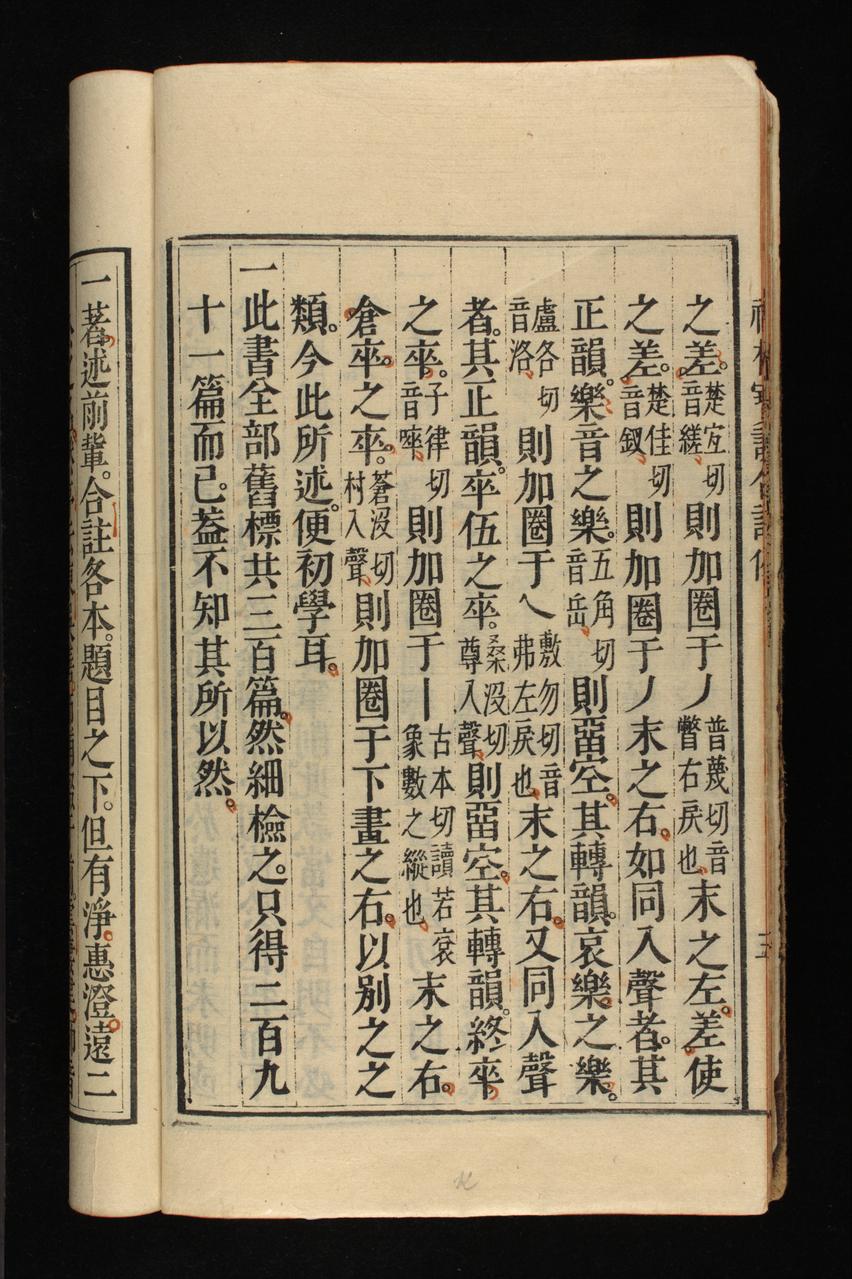 之差。楚宜切音縒則加圈于丿普蔑切音瞥右戾也末之左。差使
之差。楚佳切音釵則加圈于丿末之右。如同入聲者。其
正韻。樂音之樂。五角切音岳則畱空。其轉韻。哀樂之樂。
盧各切音洛則加圈于乀敷勿切音弗左戾也末之右。又同入聲
者。其正韻。卒伍之卒。桑沒切尊入聲則畱空。其轉韻。終卒
之卒。子律切音啐則加圈于丨古本切讀若袞象數之縱也末之右。
倉卒。之卒。蒼沒切村入聲則加圈于下畫之右。以别之之
類。今此所述。便初學耳。
一此書全部舊標共三百篇。然細檢之。只得二百九
十一篇而已。葢不知其所以然。
一著述前輩。合註各本。題目之下。但有淨惠澄遠二